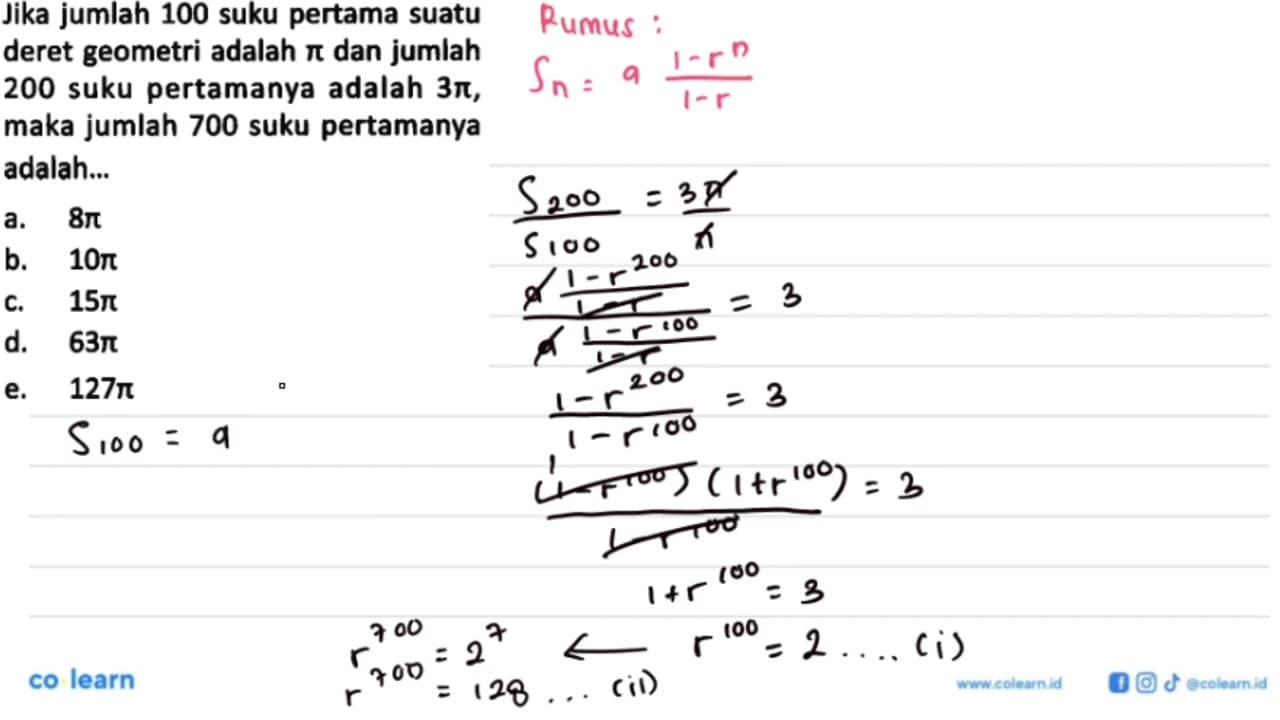 Jika jumlah 100 suku pertama suatu
deret geometri adalah π dan jumlah
200 suku pertamanya adalah 3π,
maka jumlah 700 suku pertamanya
adalah...
a. 8π
b. 10π
c. 15π
d. 63π
e. 127π
S₁₀₀ = a
Rumus :
Sₙ = a (1-rⁿ)/(1-r)
S₂₀₀/S₁₀₀ = 3π/π
(a (1-r²⁰⁰)/(1-r))/(a (1-r¹⁰⁰)/(1-r)) = 3
(1-r²⁰⁰)/(1-r¹⁰⁰) = 3
((1-r¹⁰⁰)(1+r¹⁰⁰))/(1-r¹⁰⁰) = 3
1
1+r¹⁰⁰ = 3
r⁷⁰⁰ = 2⁷ ← r¹⁰⁰ = 2 .... (i)
r⁷⁰⁰ = 128 ... (ii)
co learn
www.colearn.id @colearn.id